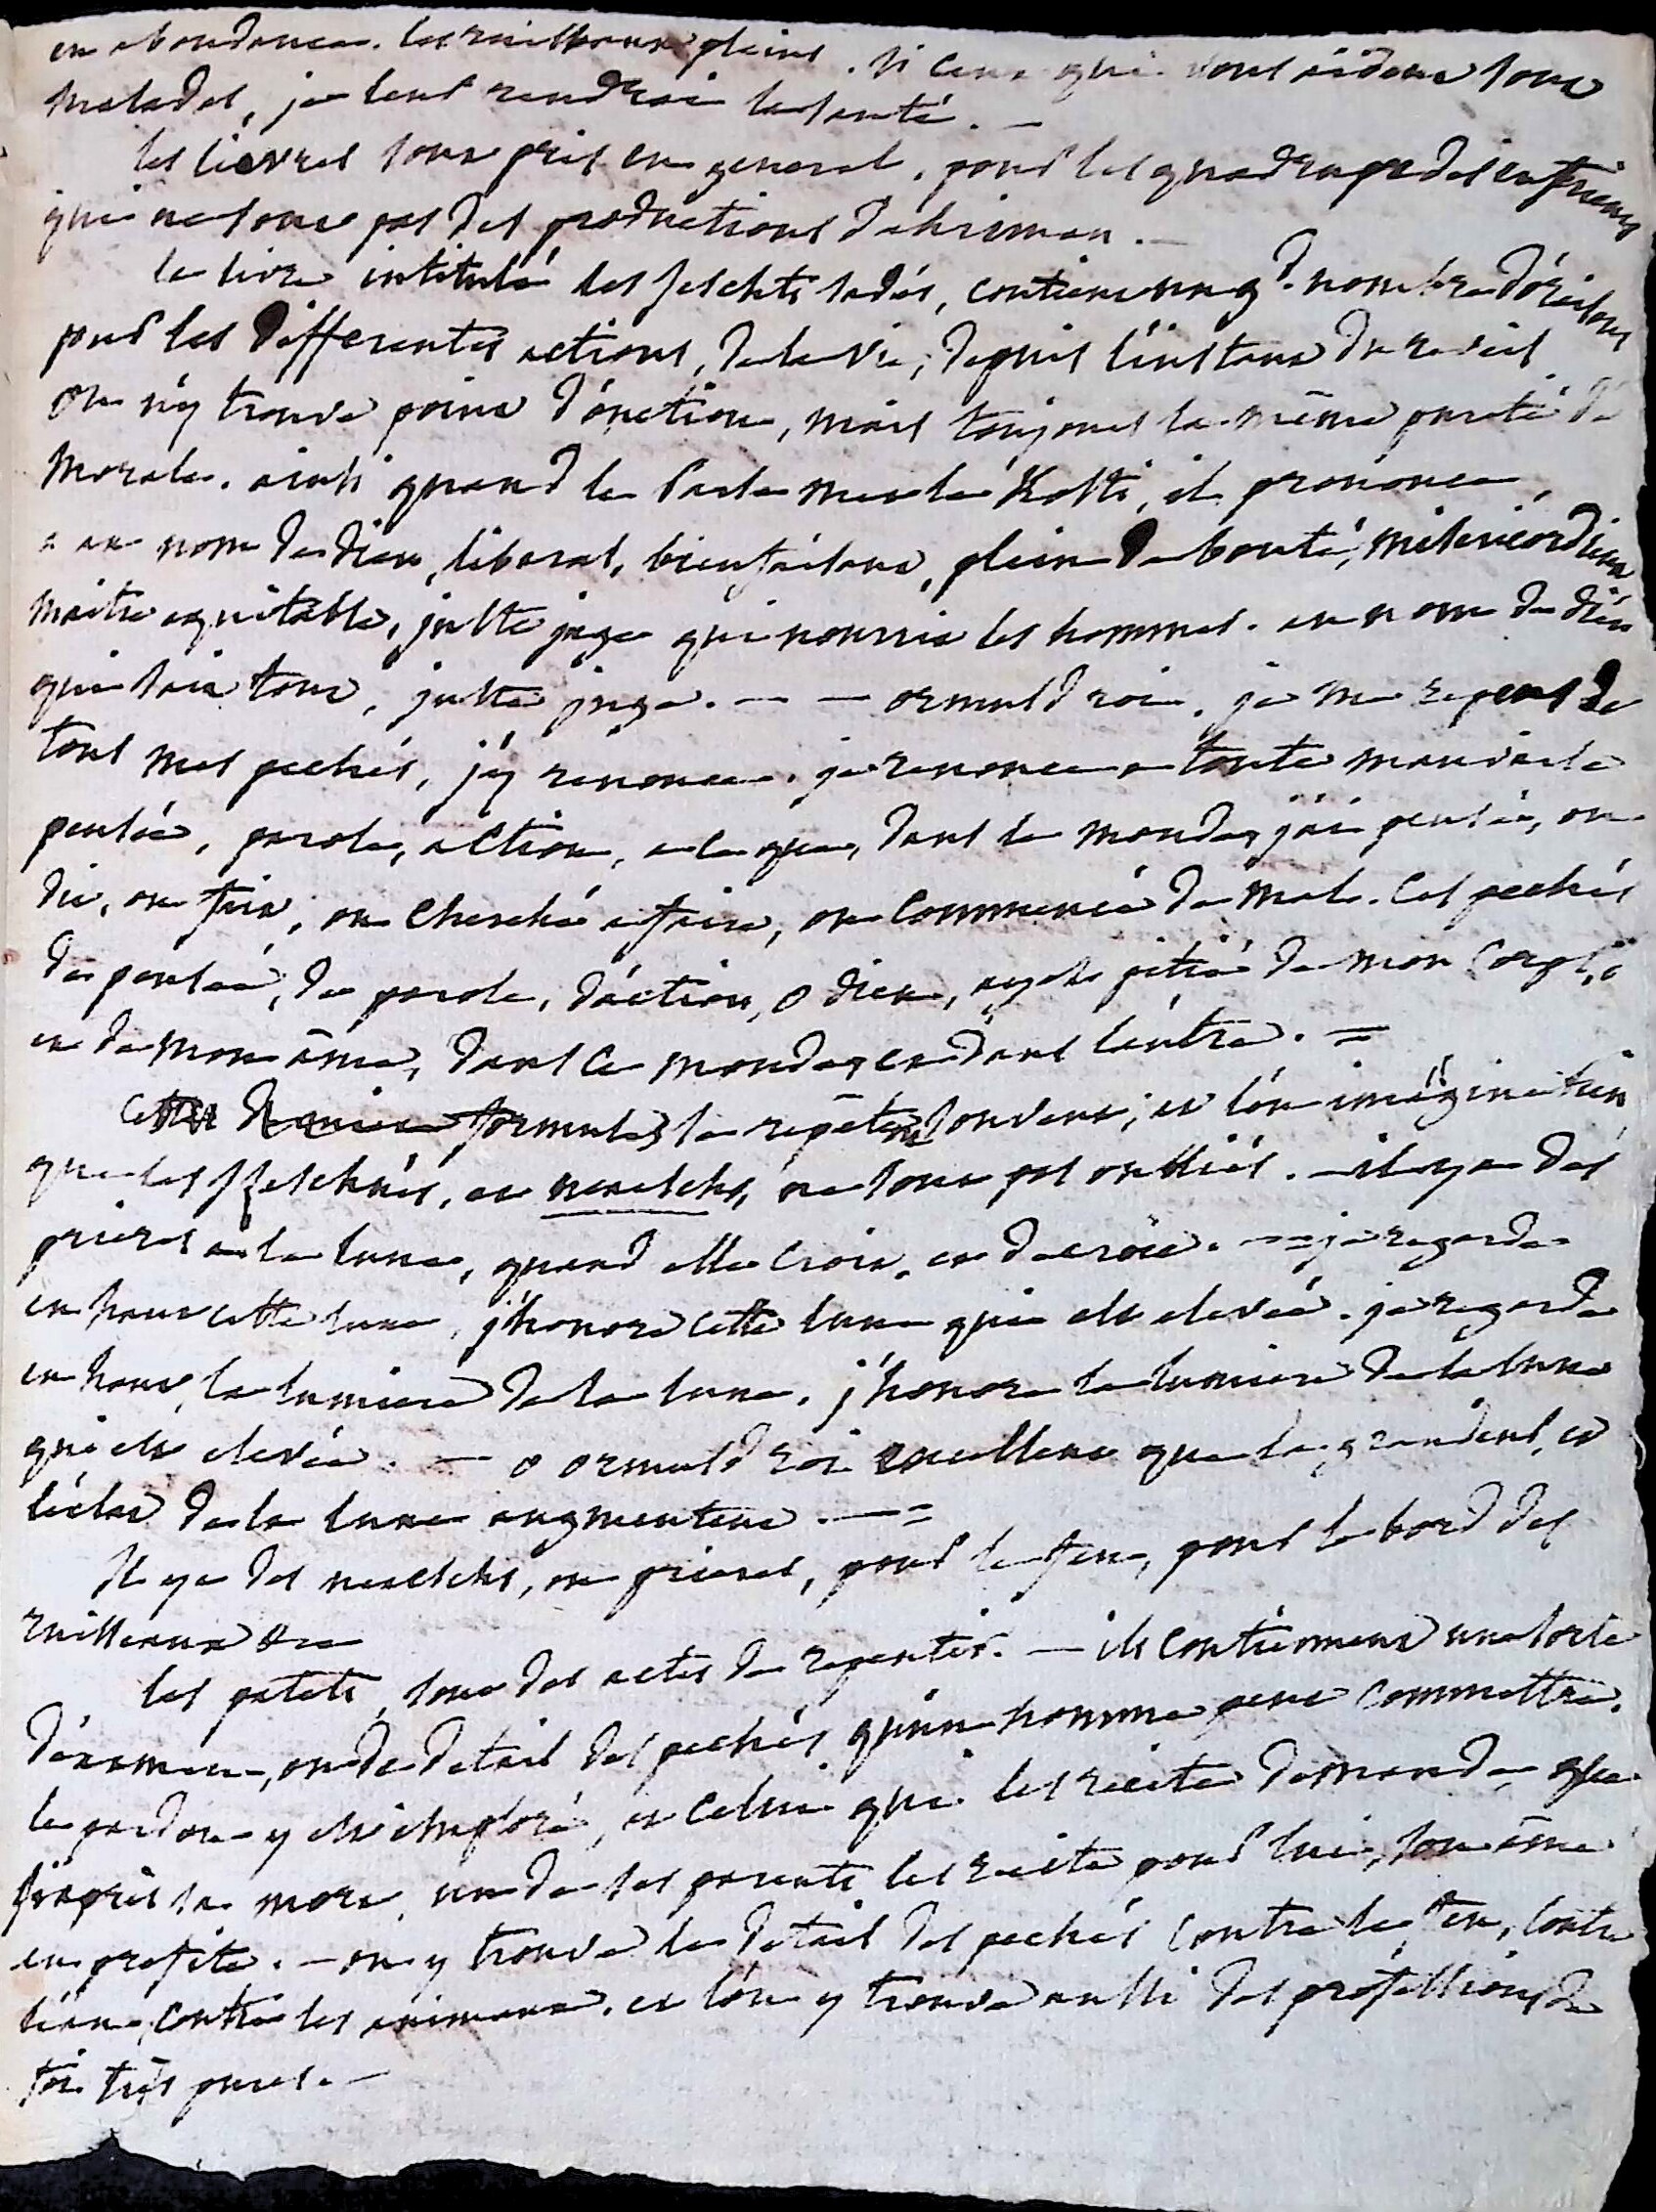 en abondance. les ruisseaux pleins. si ceux qui vous aident sont
malades, je leur rendrai la santé. —
les lievres sont pris en general, pour les quadrupedes
qui ne sont pas des productions d'ahriman. —
le livre intitulé les jeschts sadés, contient un gd. nombre d'oraisons
pour les differentes actions, de la vie, depuis l'instant du reveil
on n'y trouve point d'onction, mais toujours la même pureté de
morale. ainsi quand le Parse met le Kosti, il prononce,
" au nom de dieu, liberal, bienfaisant, plein de bonté, misericordieux
maitre equitable, juste juge qui nourrit les hommes. au nom de dieu
qui sait tout, juste juge. — — ormusd roi, je me repens de
tous mes pechés, j'y renonce. je renonce a toute mauvaise
pensée, parole, action, a ce que, dans le monde, j'ai pensé, ou
dit, ou fait, ou cherché a faire, ou commencé de mal. ces pechés
de pensée, de parole, d'action, o dieu, ayes pitié de mon corps,
et de mon âme, dans ce monde, et dans l'autre. =
cette derniere formule, se repete souvent; et l'on imagine bien
que les Izeschnés, et neaeschs, ne sont pas oubliés. — il y a des
prieres a la lune, quand elle croit, et decroit. — = je regarde
en haut cette lune, j'honore cette lune qui est elevée. je regarde
en haut, la lumiere de la lune. j'honore la lumiere de la lune
qui est elevée. — o ormusd roi excellent que la grandeur, et
l'eclat de la lune augmentent. — =
Il y a des neaeschs, ou prieres, pour le feu, pour le bord des
ruisseaux &c
les patets, sont des actes de repentir. — ils contiennent une sorte
d'examen, ou de detail des pechés qu'un homme peut commettre.
le pardon y est imploré, et celui qui les recite demande que
si apres sa mort, un de ses parents les recite pour lui, son âme
en profite. — on y trouve le detail des pechés contre le feu, contre
l'eau, contre les animaux. et l'on y trouve aussi des professions de
foi très pures. —